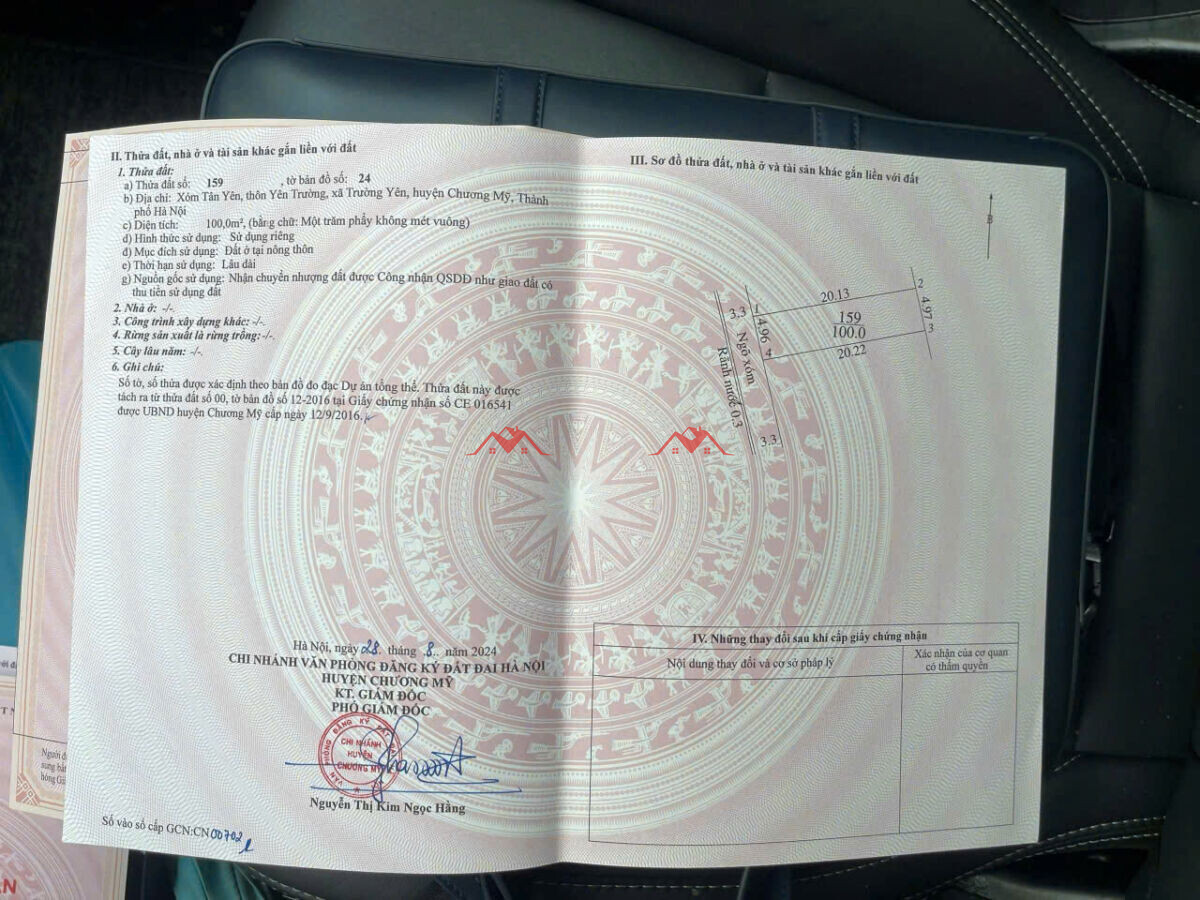 II. Thửa đất, nhà ở và tài sản khác gắn liền với đất
1. Thửa đất:
a) Thửa đất số: 159 , tờ bản đồ số: 24
b) Địa chỉ: Xóm Tân Yên, thôn Yên Trường, xã Trường Yên, huyện Chương Mỹ, Thành
phố Hà Nội
c) Diện tích: 100,0m², (bằng chữ: Một trăm phẩy không mét vuông)
d) Hình thức sử dụng: Sử dụng riêng
đ) Mục đích sử dụng: Đất ở tại nông thôn
e) Thời hạn sử dụng: Lâu dài
g) Nguồn gốc sử dụng: Nhận chuyển nhượng đất được Công nhận QSDĐ như giao đất có
thu tiền sử dụng đất
2. Nhà ở: -/-.
3. Công trình xây dựng khác: -/-.
4. Rừng sản xuất là rừng trồng: -/-.
5. Cây lâu năm: -/-.
6. Ghi chú:
Số tờ, số thửa được xác định theo bản đồ đo đạc Dự án tổng thể. Thửa đất này được
tách ra từ thửa đất số 00, tờ bản đồ số 12-2016 tại Giấy chứng nhận số CE 016541
được UBND huyện Chương Mỹ cấp ngày 12/9/2016.
Hà Nội, ngày 28 tháng 8 năm 2024
CHI NHÁNH VĂN PHÒNG ĐĂNG KÝ ĐẤT ĐAI HÀ NỘI
HUYỆN CHƯƠNG MỸ
KT. GIÁM ĐỐC
PHÓ GIÁM ĐỐC
VĂN PHÒNG ĐĂNG KÝ ĐẤT ĐAI
CHI NHÁNH
HUYỆN
CHƯƠNG MỸ
Nguyễn Thị Kim Ngọc Hằng
Số vào sổ cấp GCN:CN00702
III. Sơ đồ thửa đất, nhà ở và tài sản khác gắn liền với đất
B
20.13
2
3.3
1
4.96
159
100.0
4.97
3
4
20.22
Ngõ xóm
Rãnh nước 0.3
3.3
IV. Những thay đổi sau khi cấp giấy chứng nhận
Nội dung thay đổi và cơ sở pháp lý
Xác nhận của cơ quan
có thẩm quyền
Người đ
sung bất
hỏng Gi